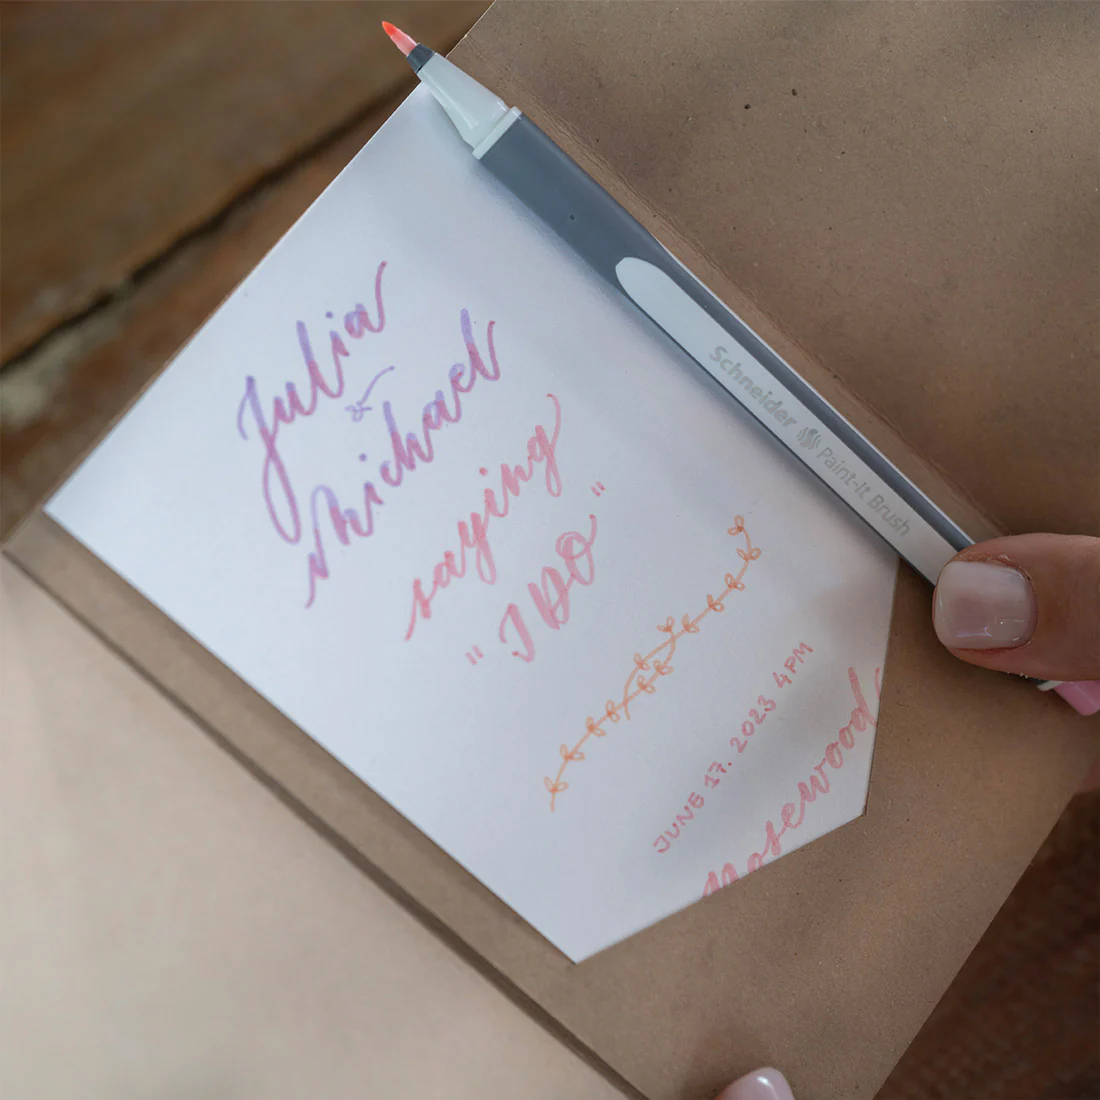 Julia
&
Michael
saying
"I DO"
JUNE 17. 2023 4PM
Rosewood
Schneider Paint-It Brush